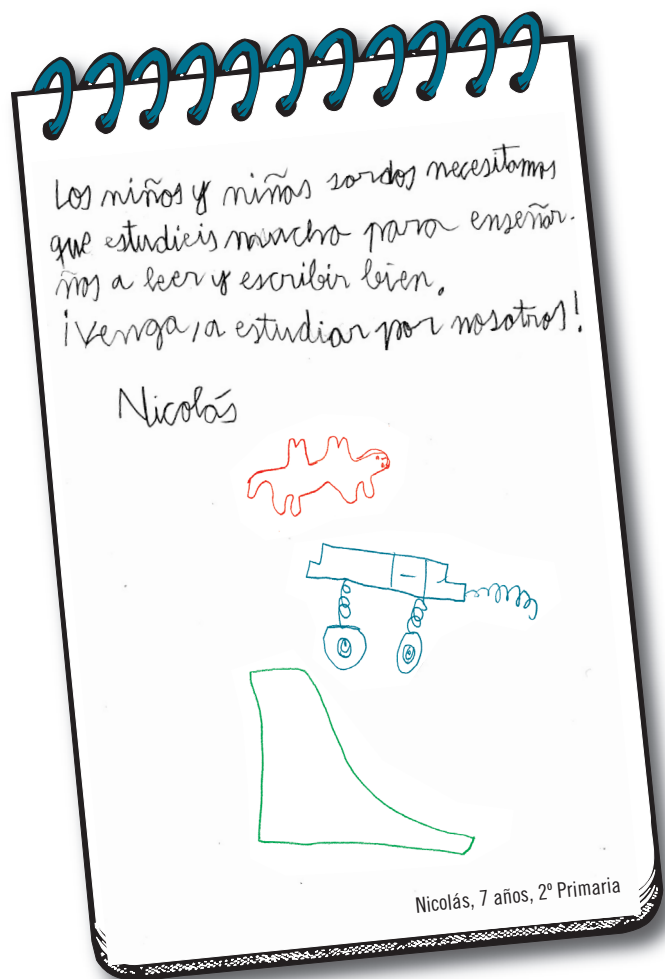 Los niños y niñas sordos necesitamos
que estudieis mucho para enseñar-
nos a leer y escribir bien.
¡Venga, a estudiar por nosotros!
Nicolás
Nicolás, 7 años, 2º Primaria